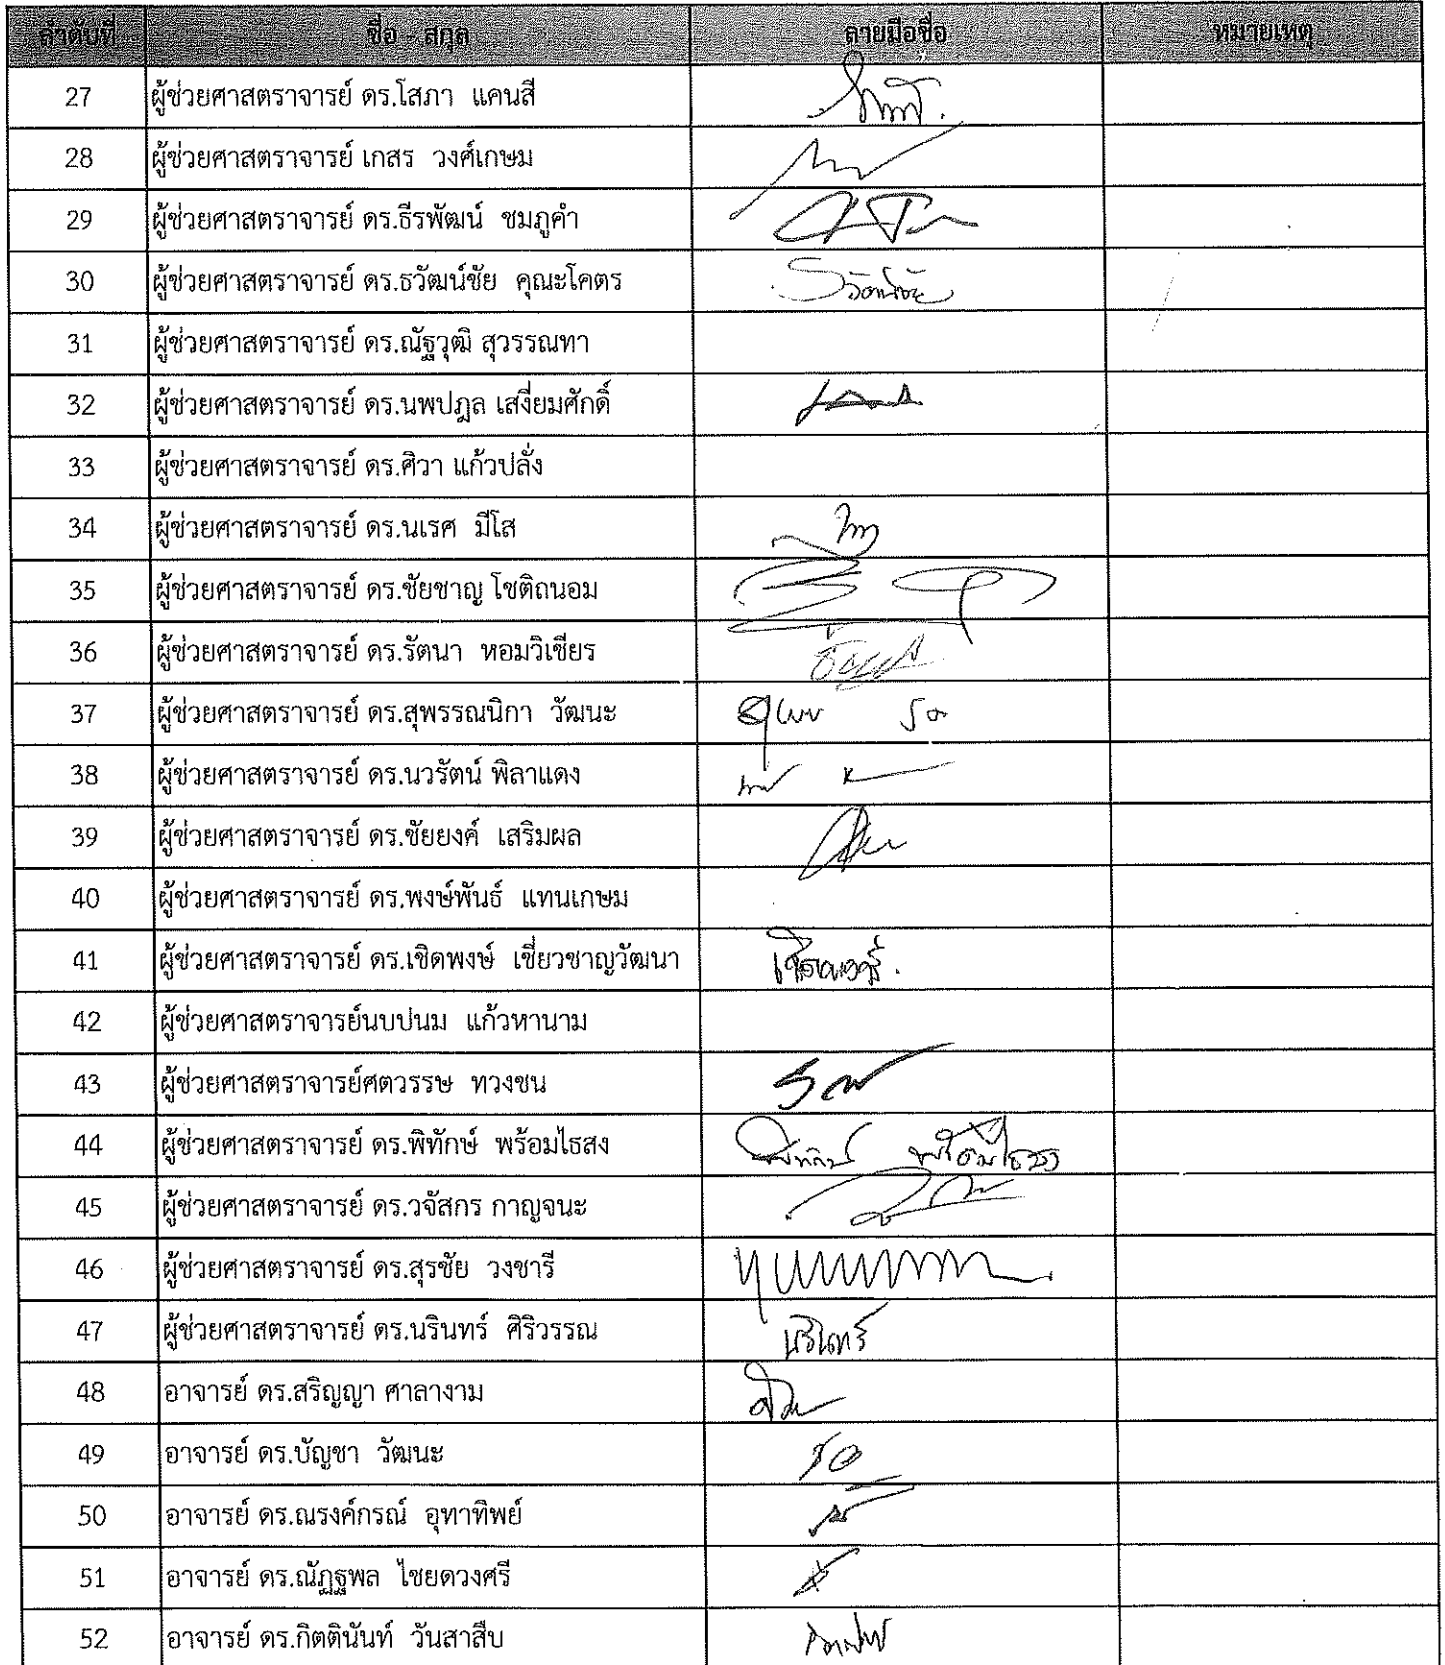 ลำดับที่ ชื่อ - สกุล ลายมือชื่อ หมายเหตุ
27 ผู้ช่วยศาสตราจารย์ ดร.โสภา แคนสี
28 ผู้ช่วยศาสตราจารย์ เกสร วงศ์เกษม
29 ผู้ช่วยศาสตราจารย์ ดร.ธีรพัฒน์ ชมภูคำ
30 ผู้ช่วยศาสตราจารย์ ดร.ธวัฒน์ชัย คุณะโคตร ธวัฒน์ชัย
31 ผู้ช่วยศาสตราจารย์ ดร.ณัฐวุฒิ สุวรรณทา
32 ผู้ช่วยศาสตราจารย์ ดร.นพปฎล เสงี่ยมศักดิ์
33 ผู้ช่วยศาสตราจารย์ ดร.ศิวา แก้วปลั่ง
34 ผู้ช่วยศาสตราจารย์ ดร.นเรศ มีโส
35 ผู้ช่วยศาสตราจารย์ ดร.ชัยชาญ โชติถนอม
36 ผู้ช่วยศาสตราจารย์ ดร.รัตนา หอมวิเชียร
37 ผู้ช่วยศาสตราจารย์ ดร.สุพรรณนิกา วัฒนะ
38 ผู้ช่วยศาสตราจารย์ ดร.นวรัตน์ พิลาแดง
39 ผู้ช่วยศาสตราจารย์ ดร.ชัยยงค์ เสริมผล
40 ผู้ช่วยศาสตราจารย์ ดร.พงษ์พันธ์ แทนเกษม
41 ผู้ช่วยศาสตราจารย์ ดร.เชิดพงษ์ เชี่ยวชาญวัฒนา เชิดพงษ์
42 ผู้ช่วยศาสตราจารย์นบปนม แก้วหานาม
43 ผู้ช่วยศาสตราจารย์ศตวรรษ ทวงชน
44 ผู้ช่วยศาสตราจารย์ ดร.พิทักษ์ พร้อมไธสง พิทักษ์ พร้อมไธสง
45 ผู้ช่วยศาสตราจารย์ ดร.วจัสกร กาญจนะ
46 ผู้ช่วยศาสตราจารย์ ดร.สุรชัย วงชารี
47 ผู้ช่วยศาสตราจารย์ ดร.นรินทร์ ศิริวรรณ นรินทร์
48 อาจารย์ ดร.สริญญา ศาลางาม
49 อาจารย์ ดร.บัญชา วัฒนะ
50 อาจารย์ ดร.ณรงค์กรณ์ อุทาทิพย์
51 อาจารย์ ดร.ณัฏฐพล ไชยดวงศรี
52 อาจารย์ ดร.กิตตินันท์ วันสาสืบ